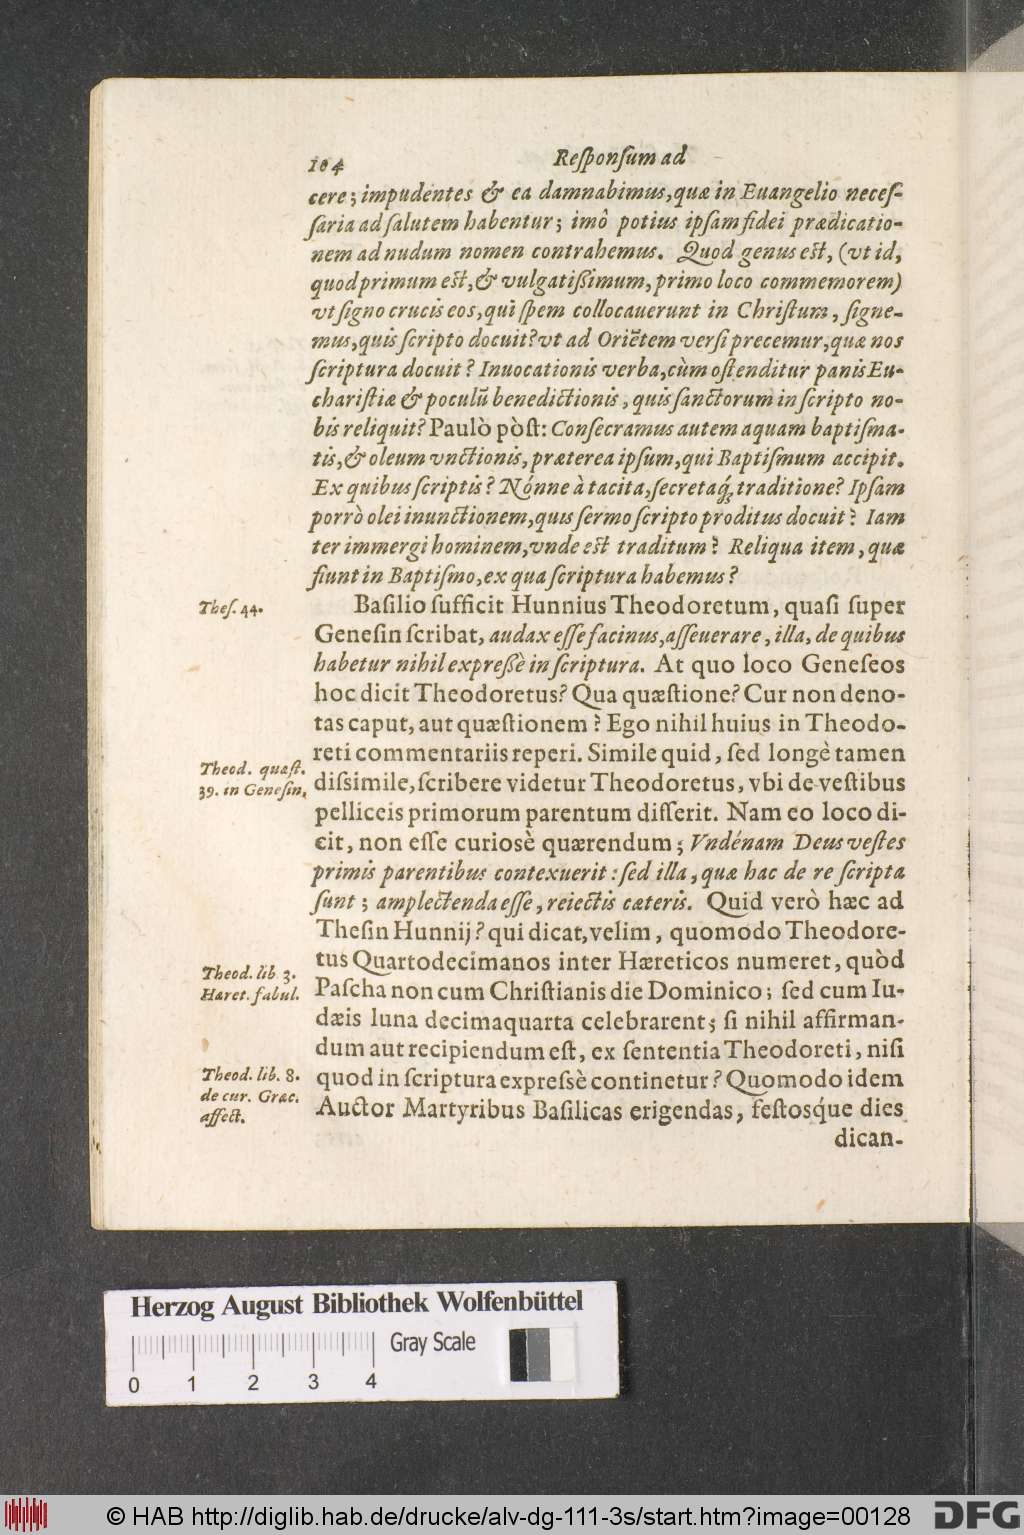 104 Responsum ad
cere; impudentes & ea damnabimus, quæ in Euangelio neces-
saria ad salutem habentur; imò potius ipsam fidei prædicatio-
nem ad nudum nomen contrahemus. Quod genus est, (vt id,
quod primum est, & vulgatißimum, primo loco commemorem)
vt signo crucis eos, qui spem collocauerunt in Christum, signe-
mus, quis scripto docuit? vt ad Oriẽtem versi precemur, quæ nos
scriptura docuit? Inuocationis verba, cùm ostenditur panis Eu-
charistiæ & poculũ benedictionis, quis sanctorum in scripto no-
bis reliquit? Paulò pòst: Consecramus autem aquam baptisma-
tis, & oleum vnctionis, præterea ipsum, qui Baptismum accipit.
Ex quibus scriptis? Nónne à tacita, secretaq́; traditione? Ipsam
porrò olei inunctionem, quis sermo scripto proditus docuit? Iam
ter immergi hominem, vnde est traditum? Reliqua item, quæ
fiunt in Baptismo, ex qua scriptura habemus?
Thes. 44. Basilio sufficit Hunnius Theodoretum, quasi super
Genesin scribat, audax esse facinus, asseuerare, illa, de quibus
habetur nihil expreßè in scriptura. At quo loco Geneseos
hoc dicit Theodoretus? Qua quæstione? Cur non deno-
tas caput, aut quæstionem? Ego nihil huius in Theodo-
reti commentariis reperi. Simile quid, sed longè tamen
Theod. quæst.
39. in Genesin,
dissimile, scribere videtur Theodoretus, vbi de vestibus
pelliceis primorum parentum disserit. Nam eo loco di-
cit, non esse curiosè quærendum; Vndénam Deus vestes
primis parentibus contexuerit: sed illa, quæ hac de re scripta
sunt; amplectenda esse, reiectis cæteris. Quid verò hæc ad
Thesin Hunnij? qui dicat, velim, quomodo Theodore-
tus Quartodecimanos inter Hæreticos numeret, quòd
Theod. lib. 3.
Hæret. fabul.
Pascha non cum Christianis die Dominico; sed cum Iu-
dæis luna decimaquarta celebrarent; si nihil affirman-
dum aut recipiendum est, ex sententia Theodoreti, nisi
Theod. lib. 8.
de cur. Græc.
affect.
quod in scriptura expressè continetur? Quomodo idem
Auctor Martyribus Basilicas erigendas, festosq́ue dies
dican-
Herzog August Bibliothek Wolfenbüttel
Gray Scale
0 1 2 3 4
© HAB http://diglib.hab.de/drucke/alv-dg-111-3s/start.htm?image=00128
DFG